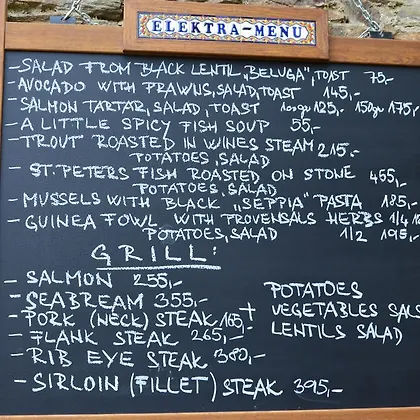 ELEKTRA-MENU
-SALAD FROM BLACK LENTIL „BELUGA", TOAST 75,-
-AVOCADO WITH PRAWNS, SALAD, TOAST 145,-
-SALMON TARTAR, SALAD, TOAST 100gr 125,- 150gr 175,-
-A LITTLE SPICY FISH SOUP 55,-
-TROUT ROASTED IN WINES STEAM 215,-
POTATOES, SALAD
- ST. PETERS FISH ROASTED ON STONE 455,-
POTATOES, SALAD
-MUSSELS WITH BLACK „SEPPIA" PASTA 185,-
-GUINEA FOWL WITH PROVENSALS HERBS 1/4
POTATOES, SALAD 1/2 195,-
GRILL:
- SALMON 255,-
-SEABREAM 355,-
-PORK (NECK) STEAK 165,-
- FLANK STEAK 265,-
-RIB EYE STEAK 380,-
-SIRLOIN (FILLET) STEAK 395,-
+ POTATOES
VEGETABLES
LENTILS SALAD